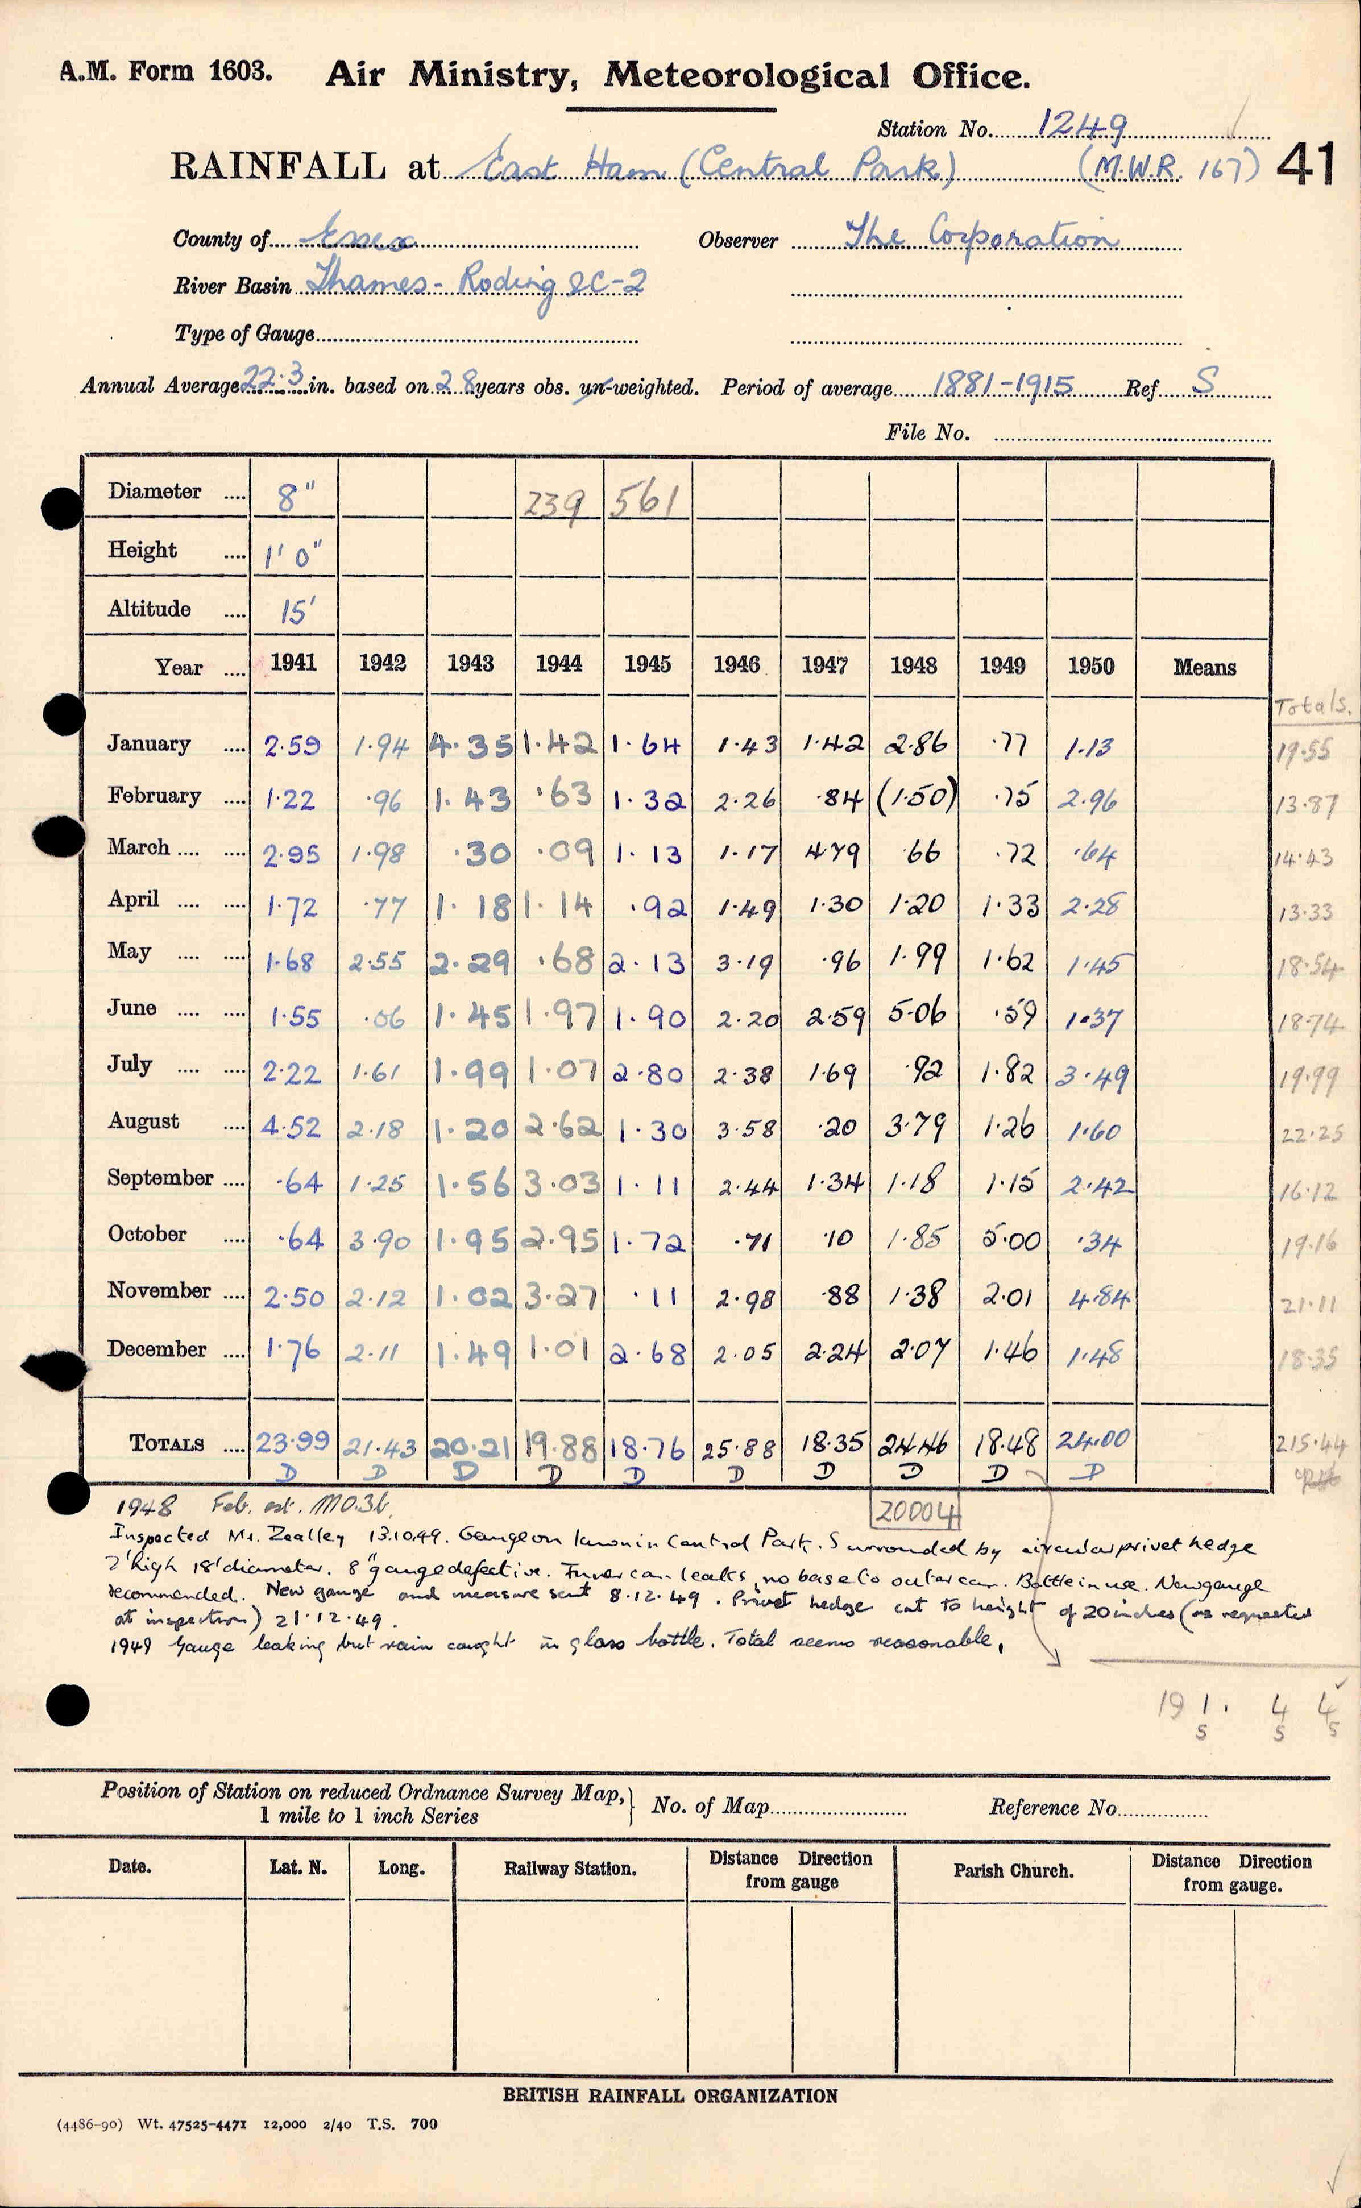 A.M. Form 1603. Air Ministry, Meteorological Office.
Station No. 1249
RAINFALL at East Ham (Central Park) (M.W.R. 167) 41
County of Essex Observer The Corporation
River Basin Thames - Roding 2C-2
Type of Gauge
Annual Average 22.3 in. based on 28 years obs. un-weighted. Period of average 1881-1915 Ref S
File No.
Diameter 8" 239 561
Height 1' 0"
Altitude 15'
Year 1941 1942 1943 1944 1945 1946 1947 1948 1949 1950 Means
Totals.
January 2.59 1.94 4.35 1.42 1.64 1.43 1.42 2.86 .77 1.13 19.55
February 1.22 .96 1.43 .63 1.32 2.26 .84 (1.50) .75 2.96 13.87
March 2.95 1.98 .30 .09 1.13 1.17 4.79 .66 .72 .64 14.43
April 1.72 .77 1.18 1.14 .92 1.49 1.30 1.20 1.33 2.28 13.33
May 1.68 2.55 2.29 .68 2.13 3.19 .96 1.99 1.62 1.45 18.54
June 1.55 .06 1.45 1.97 1.90 2.20 2.59 5.06 .59 1.37 18.74
July 2.22 1.61 1.99 1.07 2.80 2.38 1.69 .92 1.82 3.49 19.99
August 4.52 2.18 1.20 2.62 1.30 3.58 .20 3.79 1.26 1.60 22.25
September .64 1.25 1.56 3.03 1.11 2.44 1.34 1.18 1.15 2.42 16.12
October .64 3.90 1.95 2.95 1.72 .71 .10 1.85 5.00 .34 19.16
November 2.50 2.12 1.02 3.27 .11 2.98 .88 1.38 2.01 4.84 21.11
December 1.76 2.11 1.49 1.01 2.68 2.05 2.24 2.07 1.46 1.48 18.35
TOTALS 23.99 21.43 20.21 19.88 18.76 25.88 18.35 24.46 18.48 24.00 215.44
D D D D D D D D D D
1948 Feb. est. M.O.3b. 20004
Inspected Mr. Zealley 13.10.49. Gauge on lawn in Central Park. Surrounded by circular privet hedge
2' high 18' diameter. 8" gauge defective. Inner can leaks, no base to outer can. Bottle in use. New gauge
recommended. New gauge and measure sent 8.12.49. Privet hedge cut to height of 20 inches (as requested
at inspection) 21.12.49.
1949 Gauge leaking but rain caught in glass bottle. Total seems reasonable,
191. 4 4
5 5 5
Position of Station on reduced Ordnance Survey Map, 1 mile to 1 inch Series No. of Map Reference No.
Date. Lat. N. Long. Railway Station. Distance Direction from gauge Parish Church. Distance Direction from gauge.
BRITISH RAINFALL ORGANIZATION
(4486-90) Wt. 47525-4471 12,000 2/40 T.S. 700